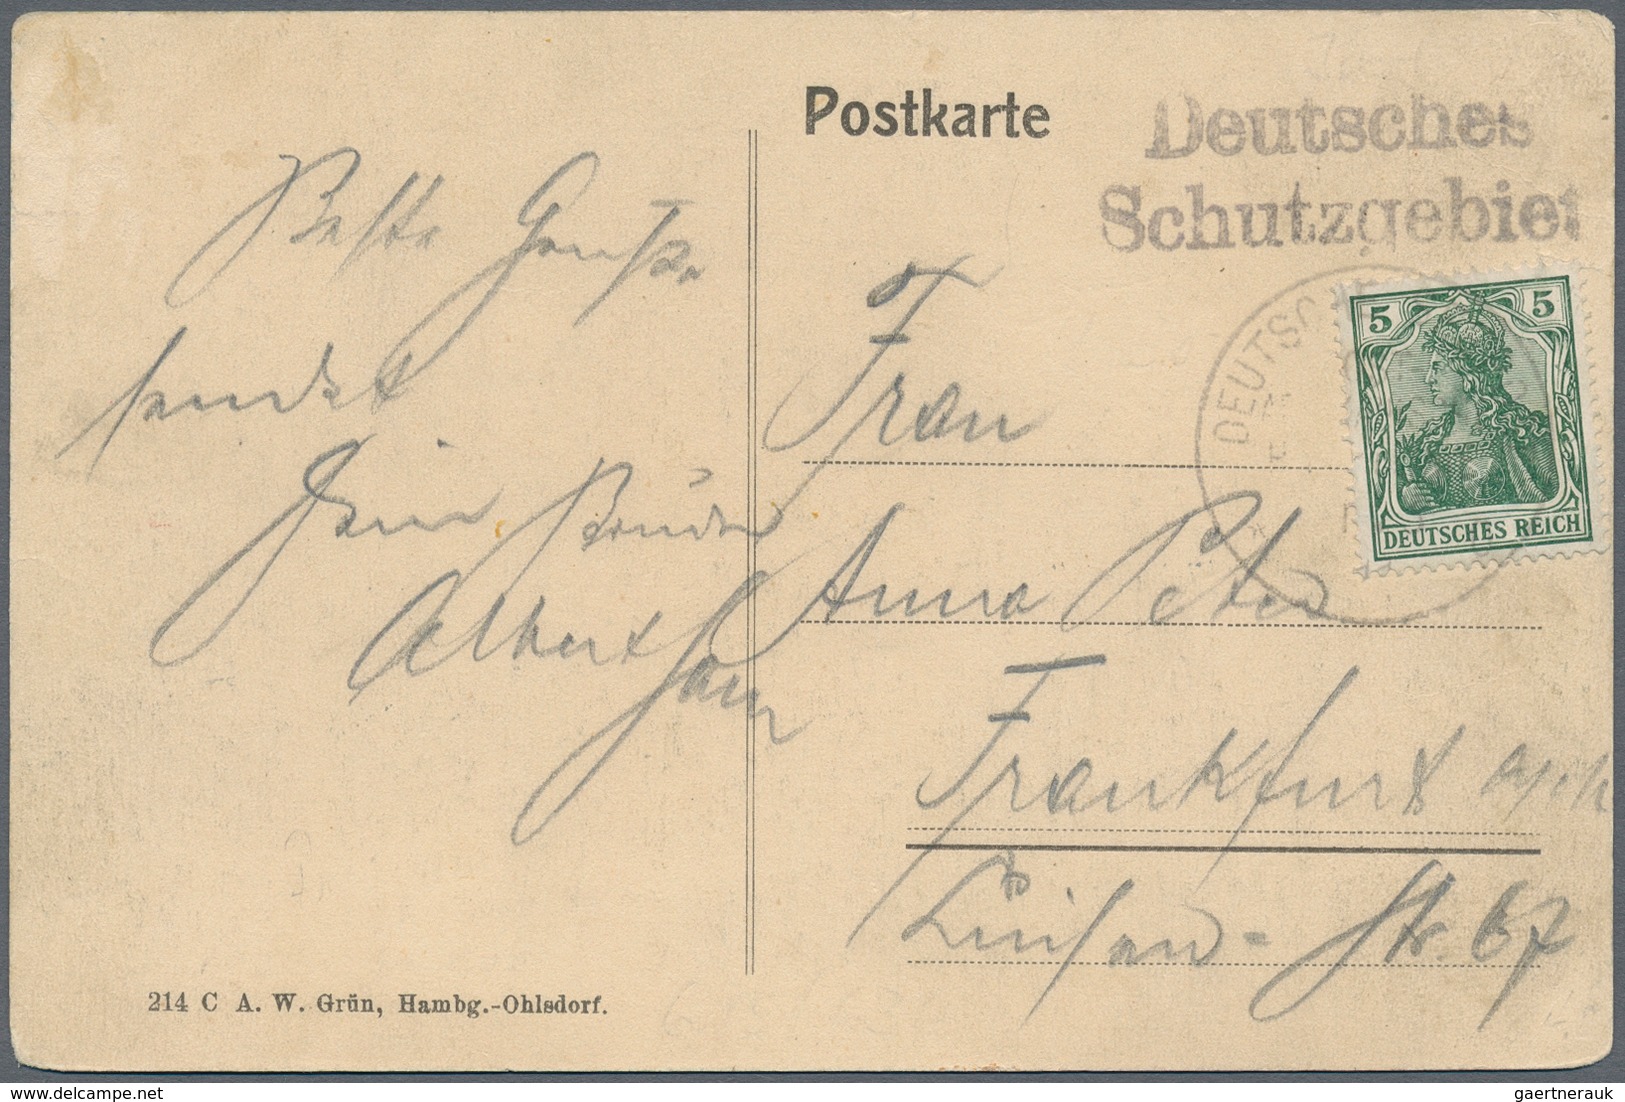 Postkarte
Deutsches
Schutzgebiet
5 5
DEUTSCHES REICH
DEUTSCHE
Beste Grüße
sendet
Dein Bruder
Albert
Frau
Anna Peter
Frankfurt
Luisen-Str. 67
214 C A. W. Grün, Hambg.-Ohlsdorf.
delcampe.net
gaertnerauk